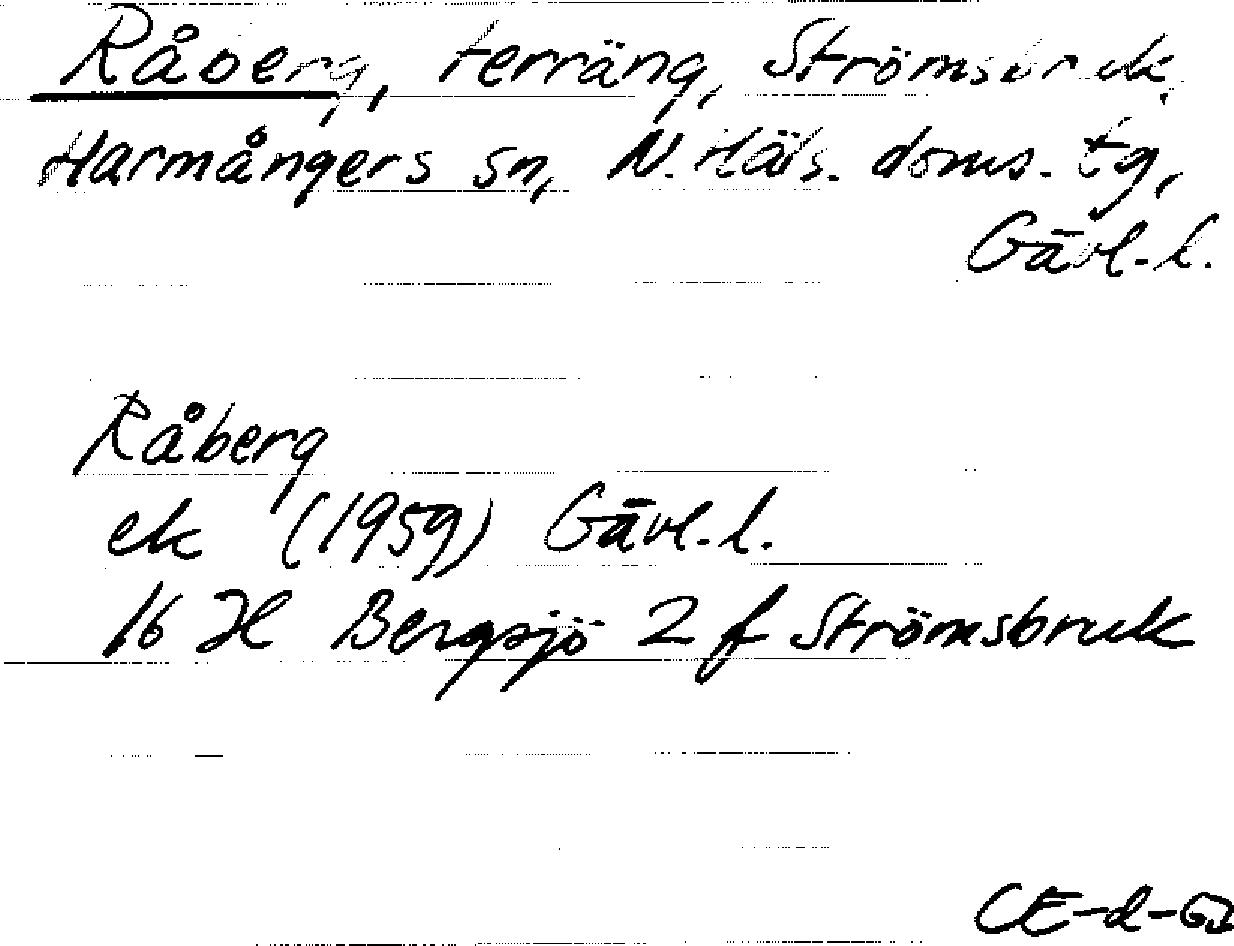 Råberg, terräng, Strömsbruk,
Harmångers sn, N. Häls. doms. tg,
Gävl. l.
Råberg
ek (1959) Gävl. l.
16 H Bergsjö 2 f Strömsbruk